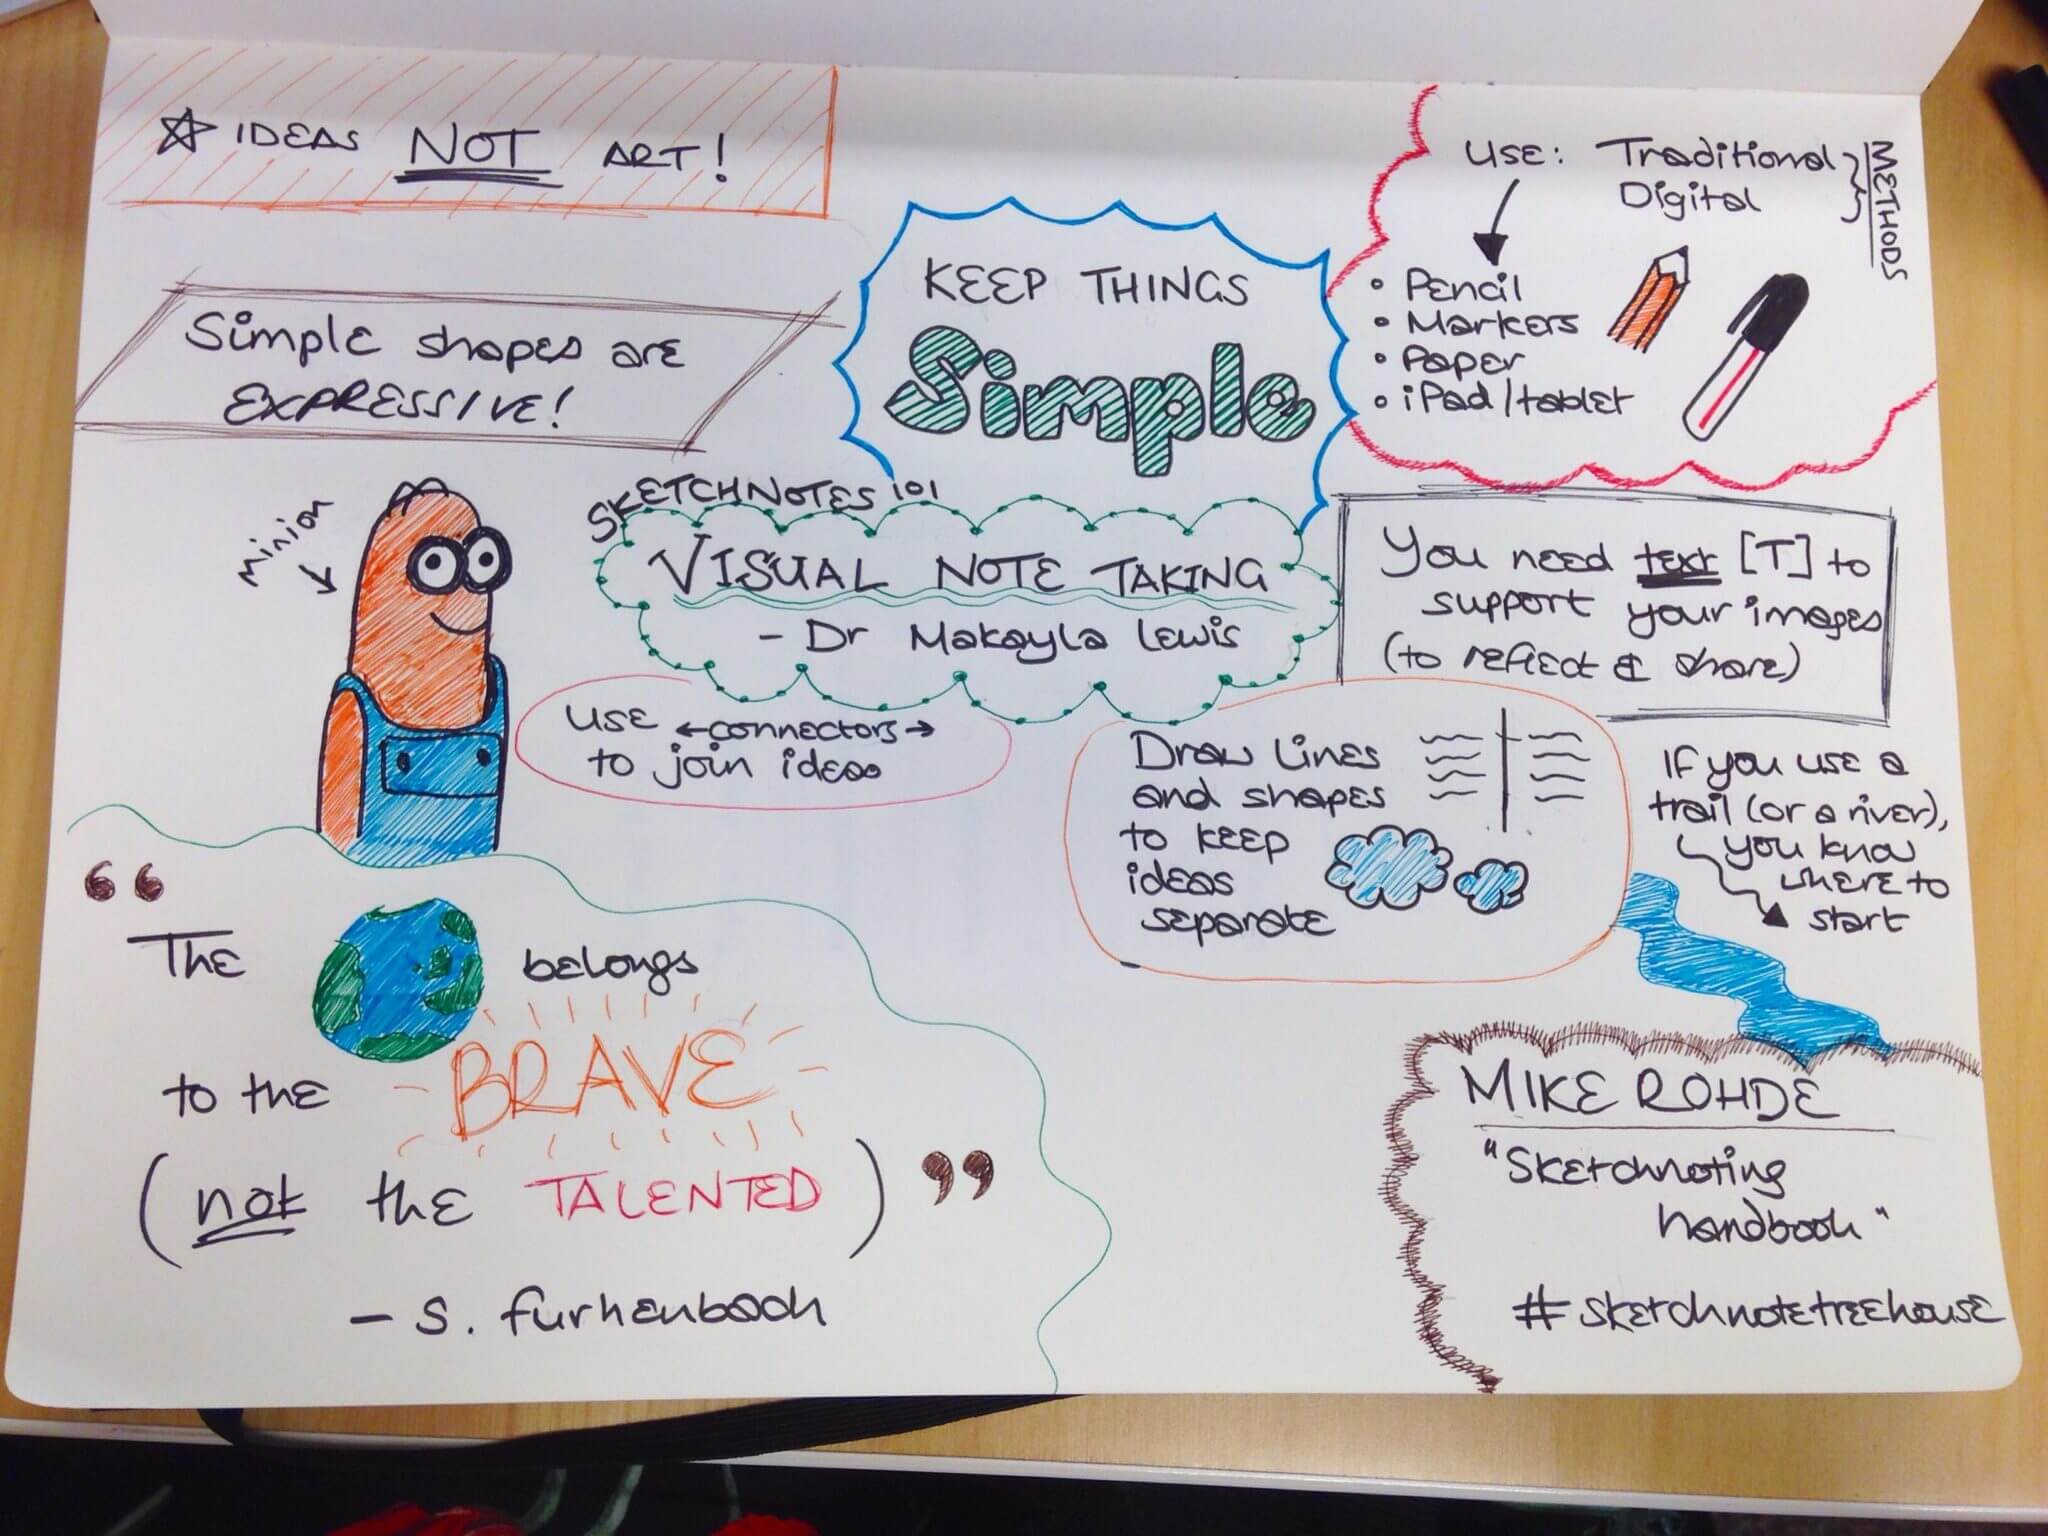 ☆ IDEAS NOT ART!
Simple shapes are
EXPRESSIVE!
KEEP THINGS
Simple
USE: Traditional
Digital
METHODS
• Pencil
• Markers
• Paper
• iPad/tablet
SKETCHNOTES 101
VISUAL NOTE TAKING
- Dr Makayla Lewis
You need text [T] to
support your images
(to reflect & share)
minion
use ←connectors→
to join ideas
Draw lines
and shapes
to keep
ideas
separate
If you use a
trail (or a river),
you know
where to
start
“
The belongs
to the BRAVE
(not the TALENTED) ”
- S. furhenbach
MIKE ROHDE
"Sketchnoting
handbook"
#sketchnotetreehouse